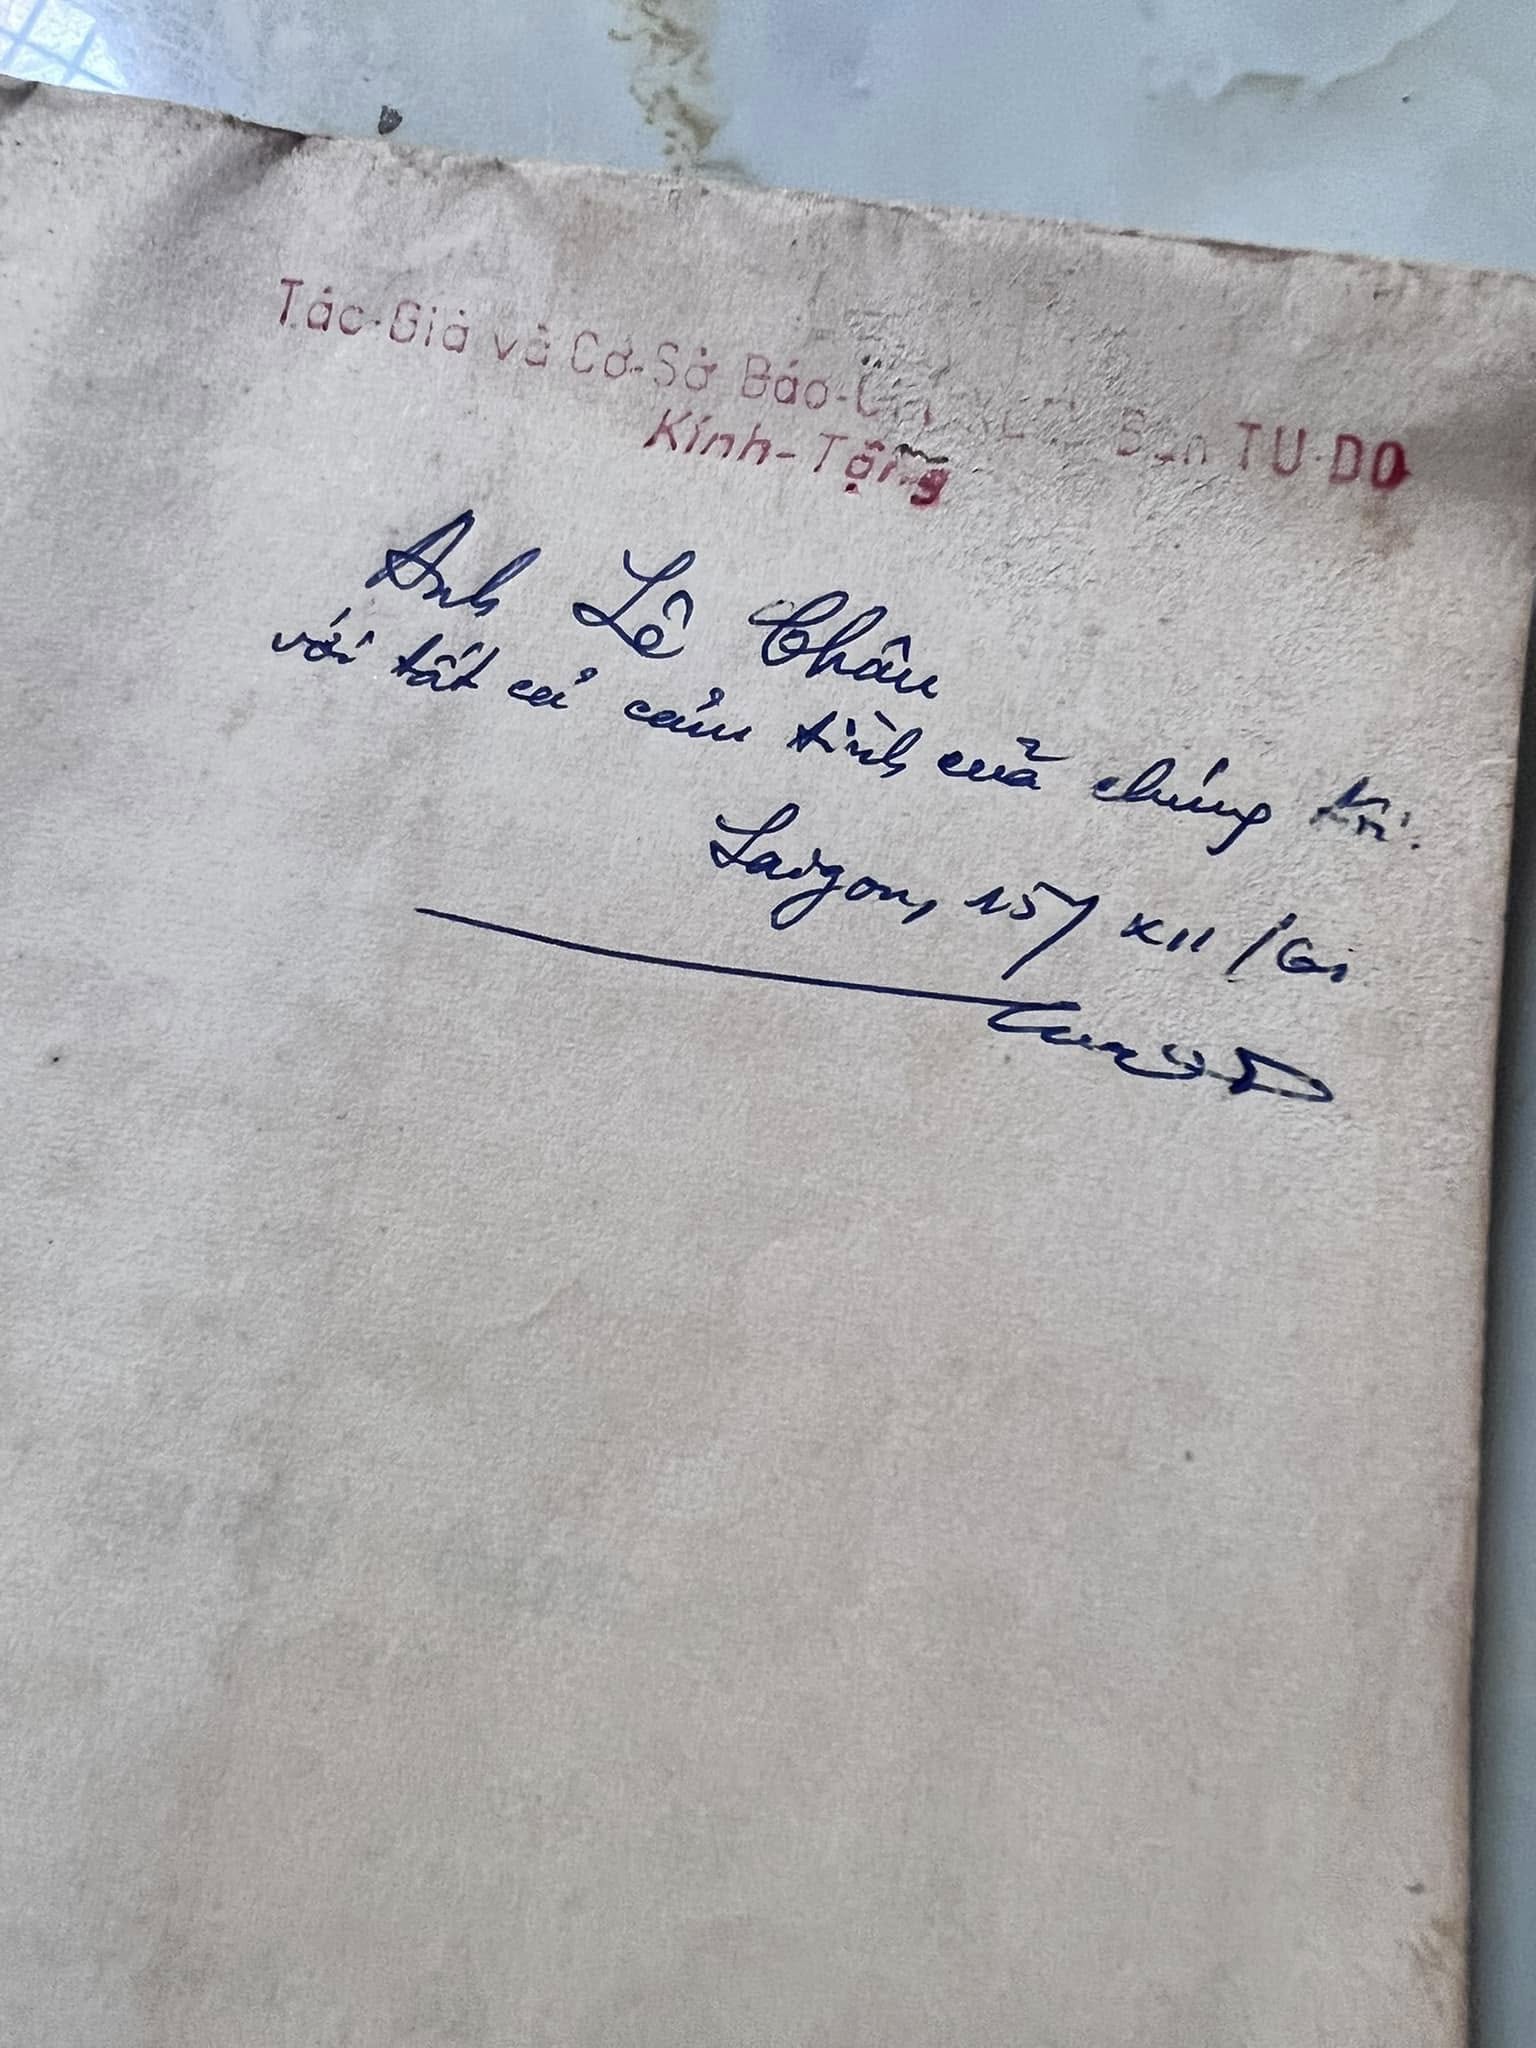 Tác-Giả và Cơ-Sở Báo-Chí Xuất Bản TU-DO
Kính-Tặng
Anh Lê Châu
với tất cả cảm tình cuả chúng tôi.
Saigon, 15/XII/61